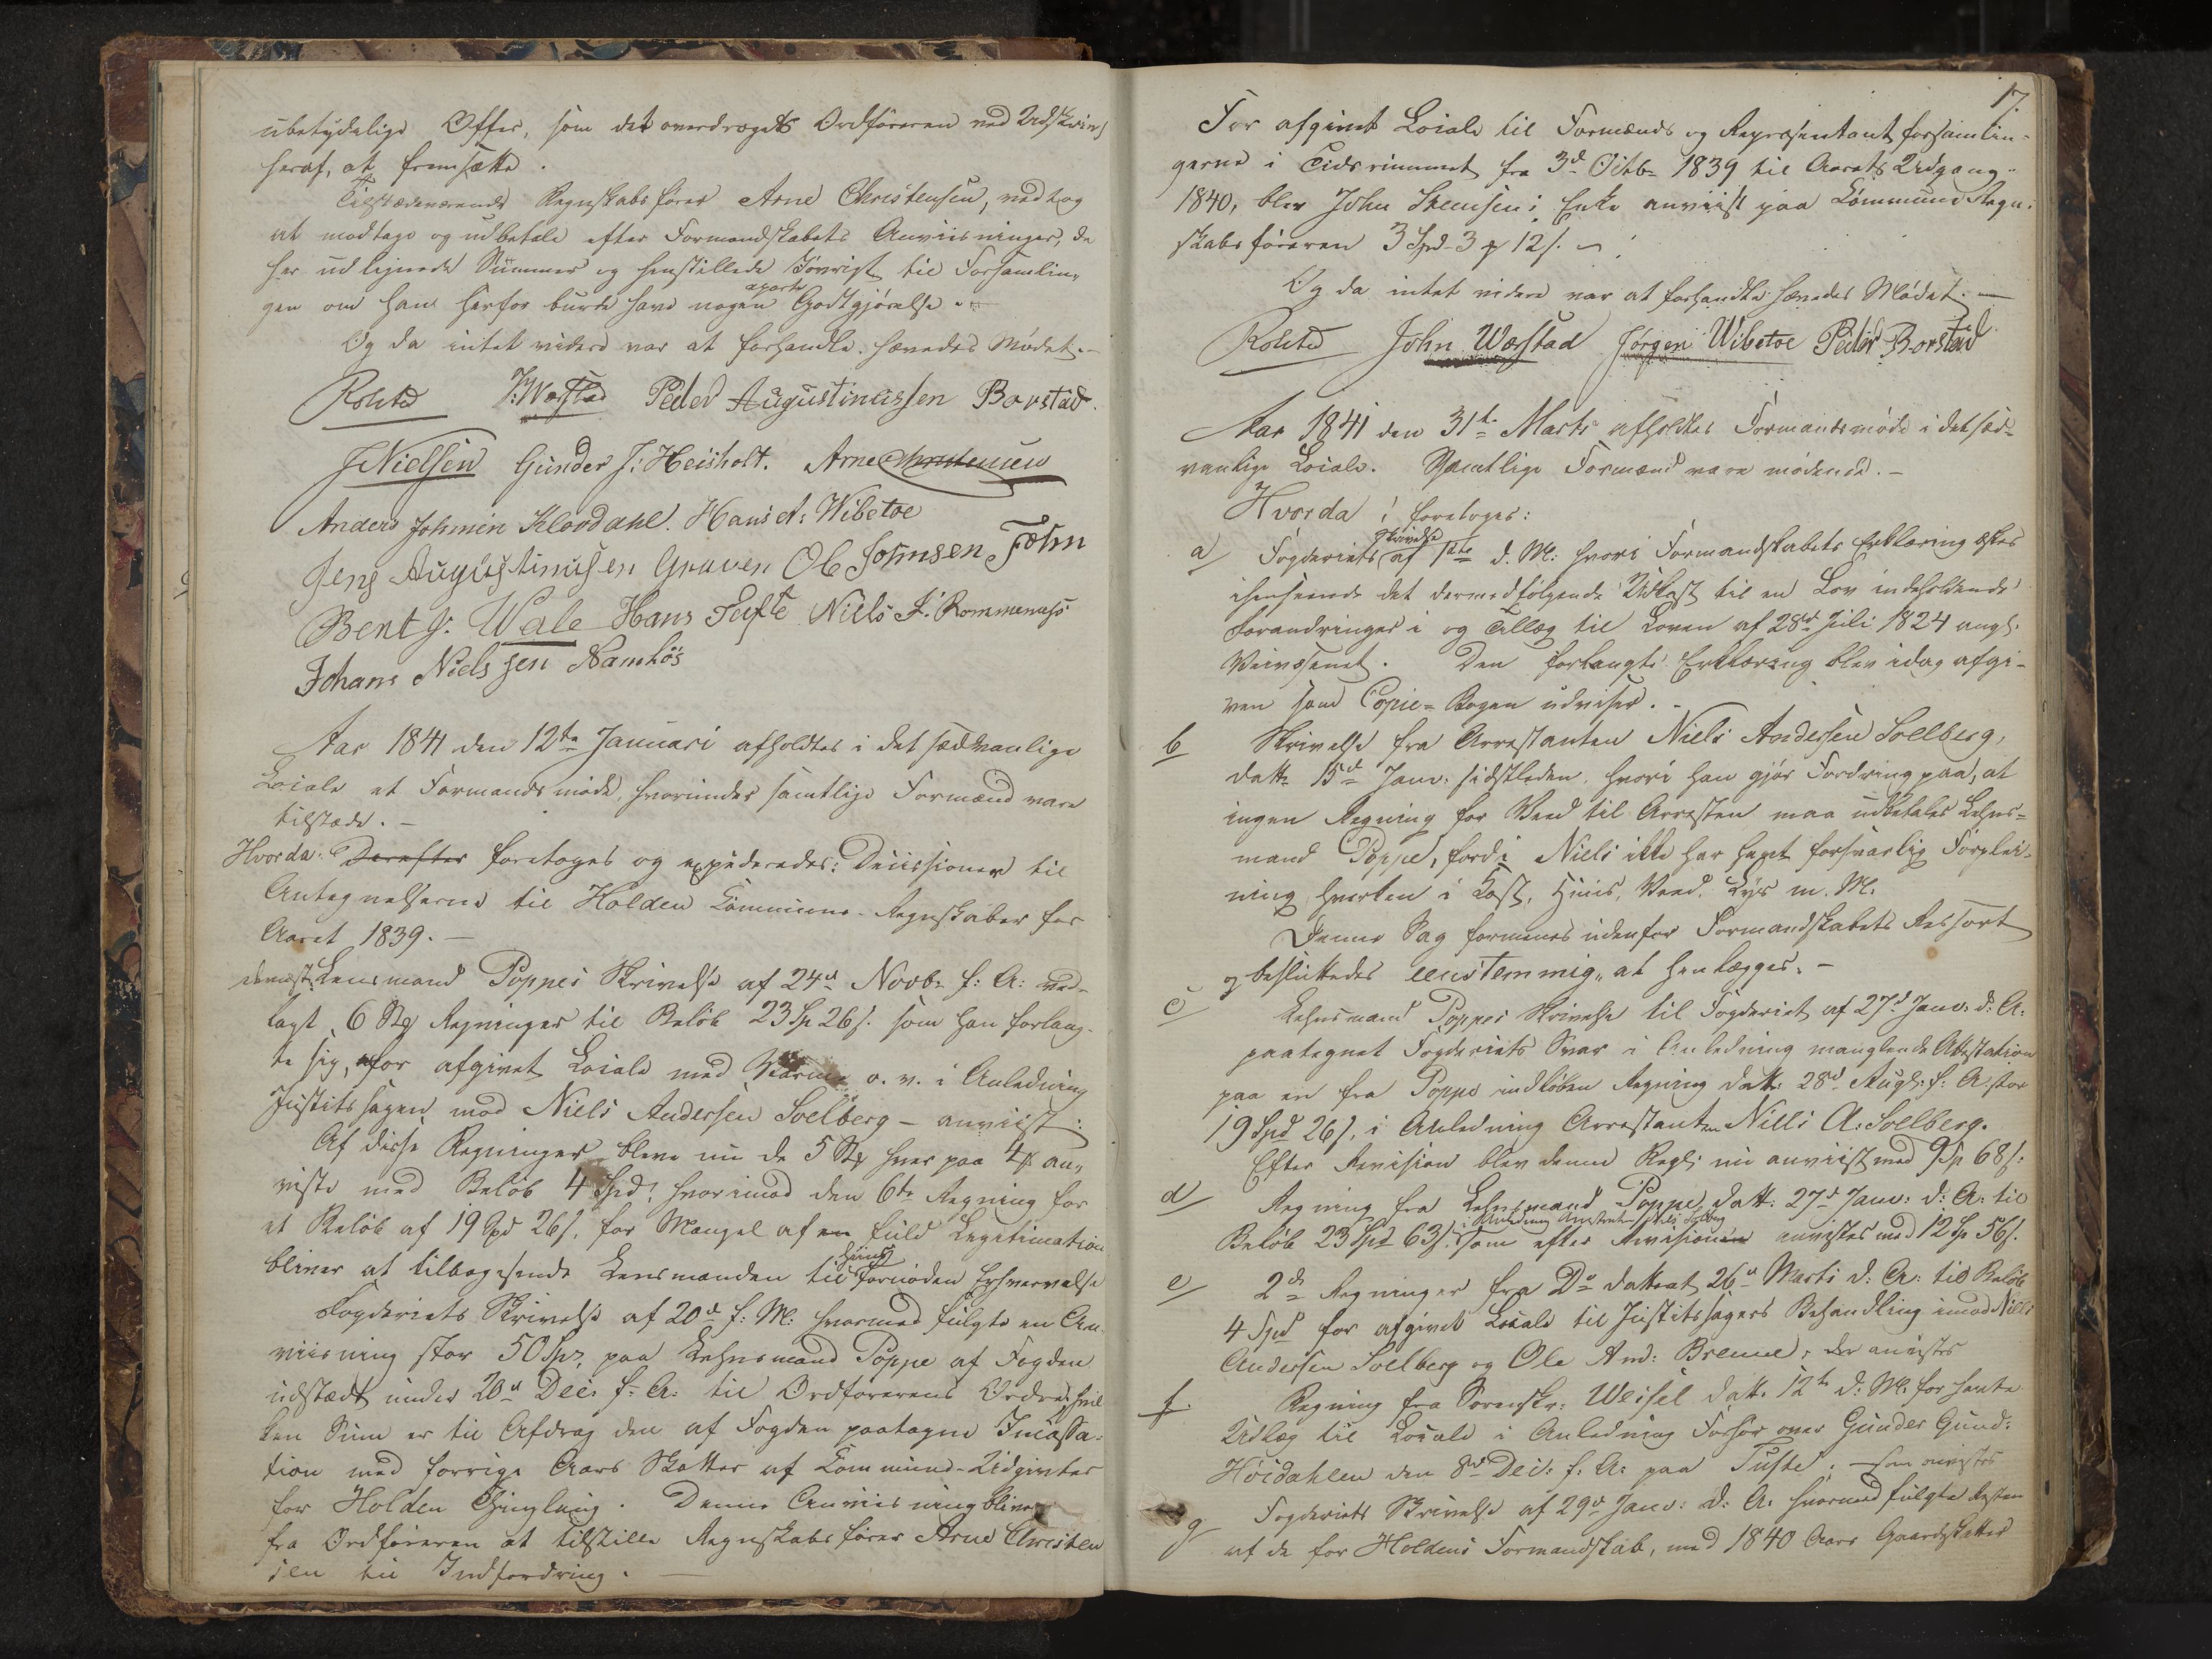 ubetydelige Offer, som det overdroges Ordføreren ved Udskrivt
heraf, at fremsætte.
Tilstædeværende Regnskabsfører Arne Christensen, vedtog
at modtage og udbetale efter Formandskabets Anviisninger, de
her udlignede Summer og henstillede Iøvrigt til Forsamlin„
gen om han herfor burde have nogen aparte Godtgjørelse.
Og da intet videre var at forhandle hævedes Mødet.
Rolsted J: Wæstad Peder Augustinussen Borstad.
J Nielsen Gunder J: Heisholt. Arne Christensen
Anders Johnsen Klovdahl. Hans A: Wibetoe
Jens Augustinusen Graven Ole Johnsen Fæhn
Bent J. Wale Hans Tufte Niels J: Rommenæss
Johans Nielssen Namløs
Aar 1841 den 12te Januari afholdtes i det sædvanlige
Locale et Formandsmøde, hvorunder samtlige Formænd vare
tilstæde. –
Hvorda: Derefter foretoges og expederedes: Decissioner til
Antegnelserne til Holden Commune-Regnskaber for
Aaret 1839. –
dernæst Lensmand Poppes Skrivelse af 24d Novbr f: A: ved-
lagt 6 Stk Regninger til Beløb 23 Sp 26 s. som han forlang-
te sig, for afgivet Locale med Varme o. v. i Anledning
Justitssagen mod Niels Andersen Soelberg – anviist:
Af disse Regninger bleve nu de 5 Stk hver paa 4 an„
viste med Beløb 4 Spd, hvorimod den 6te Regning for
et Beløb af 19 Spd 26 s. for Mangel af en fuld Legitimation
bliver at tilbagesende Lensmanden til Fornøden Erhvervelse
Fogderiets Skrivelse af 20d f: M: hvormed fulgte en An-
viisning stor 50 Spd, paa Lehnsmand Poppe af Fogden
udstædt under 20d Dec. f: A: til Ordførerens Ordre, hvil
ken Sum er til Afdrag den af Fogden paatagne Incassa-
tion med forrige Aars Skatter af Commune-Udgivter
for Holden Thinglaug. Denne Anviisning bliver
fra Ordføreren at tilstille Regnskabsfører Arne Christen
sen til Indfordring. –
17.
For afgivet Locale til Formænds og Repræsentant forsamlin-
gerne i Tidsrummet fra 3d Octbr 1839 til Aarets Udgang
1840, blev John Stensens Enke anviist paa Commune Regn-
skabsføreren 3 Spd 3 12 s.
Og da intet videre var at forhandle hævedes Mødet. –
Rolsted John Wæstad Jørgen Wibetoe Peder Borstad
Aar 1841 den 31te Marts afholdtes Formandsmøde i det sæd-
vanlige Locale. Samtlige Formænd vare mødende. –
Hvorda foretoges:
a Fogderiets Skrivelse af 1ste d. M: hvori Formandskabets Erklæring æskes
ihenseende det dermedfølgende Udkast til en Lov indeholdende
Forandringer i og Tillæg til Loven af 28d Juli 1824 ang:
Veivæsenet. Den forlangte Erklæring blev idag afgi-
ven som Copie-Bogen udviser. –
b Skrivelse fra Arrestanten Niels Andersen Soelberg,
datt: 15d Janv: sidstleden, hvori han gjør Fordring paa, at
ingen Regning for Veed til Arresten maa udbetales Lehns-
mand Poppe, fordi Niels ikke har havt forsvarlig Forplei-
ning, hverken i Kost, Huus, Veed, Lys m. M.
Denne Sag formenes udenfor Formandskabets Ressort
og besluttedes eenstemmig„ at henlægges. –
c Lehnsmand Poppes Skrivelse til Fogderiet af 27d Janv: d: A:
paategnet Fogderiets Svar i Anledning manglende Attestation
paa en fra Poppe indløben Regning datt: 28d Aug: f: A. stor
19 Spd 26 s. i Anledning Arrestanten Niels A: Soelberg.
Efter Revision blev denne Regl: nu anviist med 9 Sp 68 s.
d Regning fra Lehnsmand Poppe, datt: 27d Janv: d: A: til
i Anledning Arrestanten Niels Solberg
Beløb 23 Spd 63 s. som efter Revisionen anvistes med 12 Sp 56 s.
e 2de Regninger fra Do datteret 26d Marts d: A: til Beløb
4 Spd for afgivet Locale til Justitssagers Behandling imod Niels
Andersen Soelberg og Ole And: Brenne, der anvistes
f. Regning fra Sorenskr: Weisel datt. 12te d: M: for havte
Udlæg til Locale i Anledning Forhør over Gunder Gund:
Høidahlen den 8d Dec: f: A: paa Tufte. – som anvistes
g Fogderiets Skrivelse af 29d Janv: d: A: hvormed fulgte Resten
af de for Holdens Formandskab, med 1840 Aars Gaardskatter